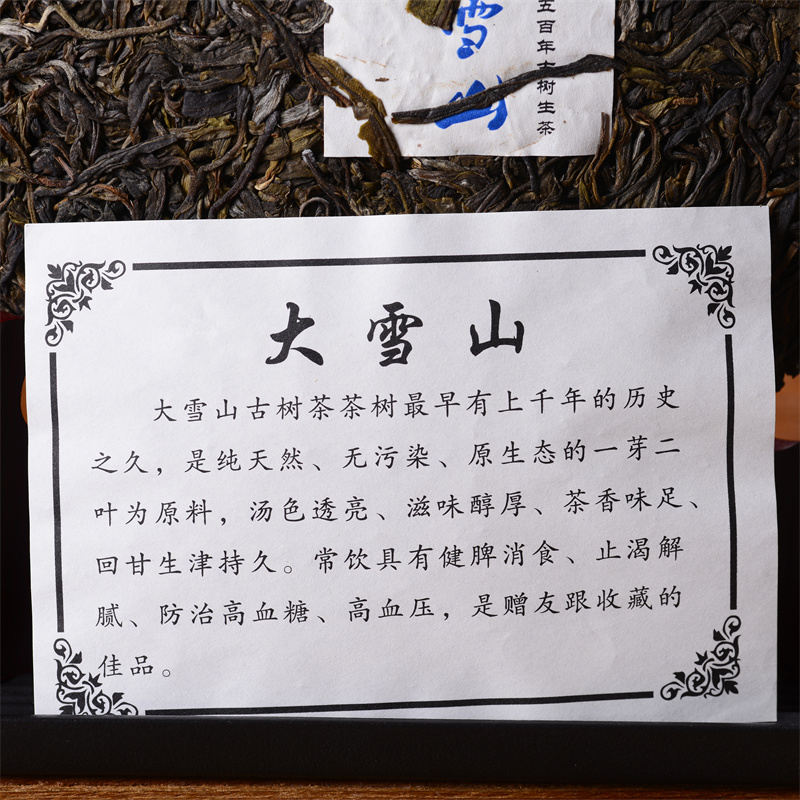 雪山
五百年古树生茶
大雪山
大雪山古树茶茶树最早有上千年的历史
之久，是纯天然、无污染、原生态的一芽二
叶为原料，汤色透亮、滋味醇厚、茶香味足、
回甘生津持久。常饮具有健脾消食、止渴解
腻、防治高血糖、高血压，是赠友跟收藏的
佳品。